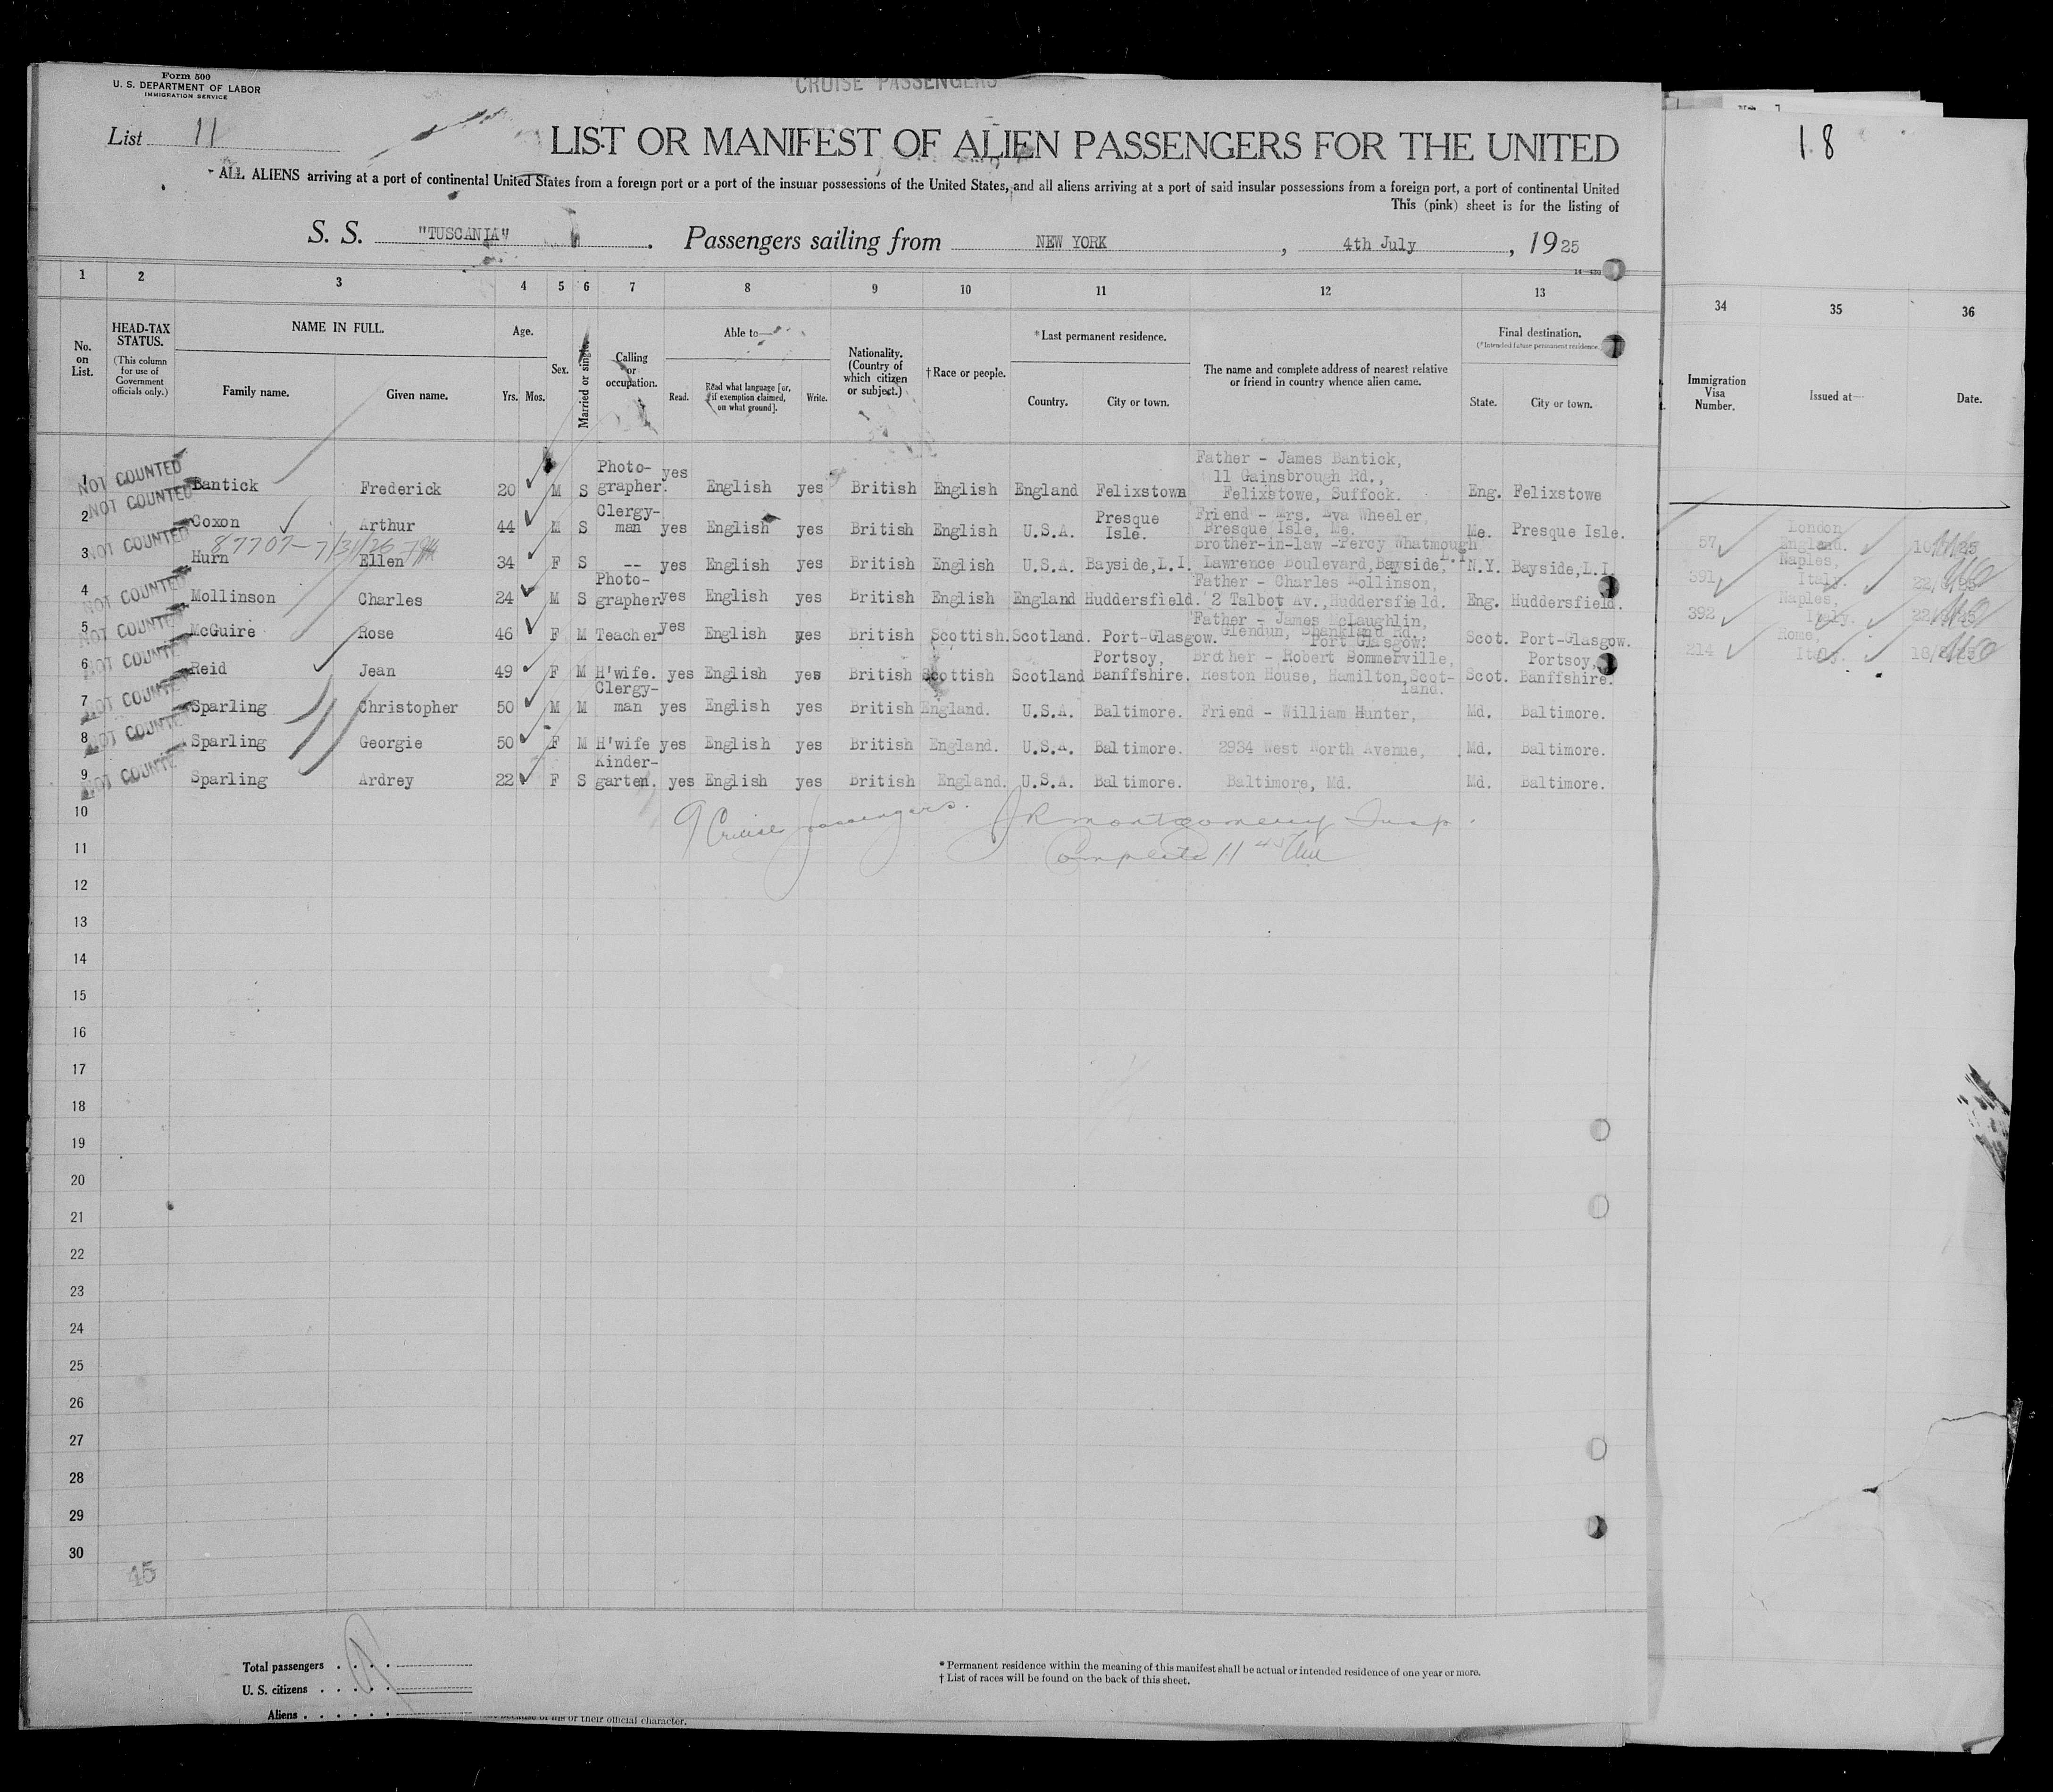 Form 500
U. S. DEPARTMENT OF LABOR
IMMIGRATION SERVICE
CRUISE PASSENGERS
List 11
18
LIST OR MANIFEST OF ALIEN PASSENGERS FOR THE UNITED
ALL ALIENS arriving at a port of continental United States from a foreign port or a port of the insular possessions of the United States, and all aliens arriving at a port of said insular possessions from a foreign port, a port of continental United
This (pink) sheet is for the listing of
S. S. "TUSCANIA". Passengers sailing from NEW YORK, 4th July, 1925
1 2 3 4 5 6 7 8 9 10 11 12 13
34 35 36
No. on List.
HEAD-TAX STATUS.
(This column for use of Government officials only.)
NAME IN FULL.
Family name. Given name.
Age.
Yrs. Mos.
Sex.
Married or single.
Calling or occupation.
Able to—
Read. Read what language [or, if exemption claimed, on what ground]. Write.
Nationality. (Country of which citizen or subject.)
†Race or people.
*Last permanent residence.
Country. City or town.
The name and complete address of nearest relative or friend in country whence alien came.
Final destination.
(*Intended future permanent residence.)
State. City or town.
Immigration Visa Number.
Issued at—
Date.
NOT COUNTED
1 Bantick Frederick 20 M S Photo-grapher. yes English yes British English England Felixstown Father - James Bantick, 11 Gainsbrough Rd., Felixstowe, Suffock. Eng. Felixstowe
NOT COUNTED
2 Coxon Arthur 44 M S Clergy-man yes English yes British English U.S.A. Presque Isle. Friend - Mrs. Eva Wheeler, Presque Isle, Me. Me. Presque Isle.
NOT COUNTED
87707-7/31/26
3 Hurn Ellen 34 F S -- yes English yes British English U.S.A. Bayside,L.I. Brother-in-law -Percy Whatmough Lawrence Boulevard,Bayside,L.I. N.Y. Bayside,L.I.
NOT COUNTED
4 Mollinson Charles 24 M S Photo-grapher yes English yes British English England Huddersfield. Father - Charles Mollinson, 2 Talbot Av.,Huddersfield. Eng. Huddersfield.
NOT COUNTED
5 McGuire Rose 46 F M Teacher yes English yes British Scottish. Scotland. Port-Glasgow. Father - James McLaughlin, Glendun, Shankland Rd. Port Glasgow. Scot. Port-Glasgow.
NOT COUNTED
6 Reid Jean 49 F M H'wife. yes English yes British Scottish Scotland Portsoy, Banffshire. Brother - Robert Sommerville, Reston House, Hamilton,Scot-land. Scot. Portsoy, Banffshire.
NOT COUNTED
7 Sparling Christopher 50 M M Clergy-man yes English yes British England. U.S.A. Baltimore. Friend - William Hunter, Md. Baltimore.
NOT COUNTED
8 Sparling Georgie 50 F M H'wife yes English yes British England. U.S.A. Baltimore. 2934 West North Avenue, Md. Baltimore.
NOT COUNTED
9 Sparling Ardrey 22 F S Kinder-garten. yes English yes British England. U.S.A. Baltimore. Baltimore, Md. Md. Baltimore.
57 London England.
391 Naples, Italy.
392 Naples, Italy.
214 Rome, Italy.
9 Cruise passengers. J R Montgomery Insp.
Complete 11 45
10
11
12
13
14
15
16
17
18
19
20
21
22
23
24
25
26
27
28
29
30
45
Total passengers
U. S. citizens
Aliens
* Permanent residence within the meaning of this manifest shall be actual or intended residence of one year or more.
† List of races will be found on the back of this sheet.
because of his or their official character.